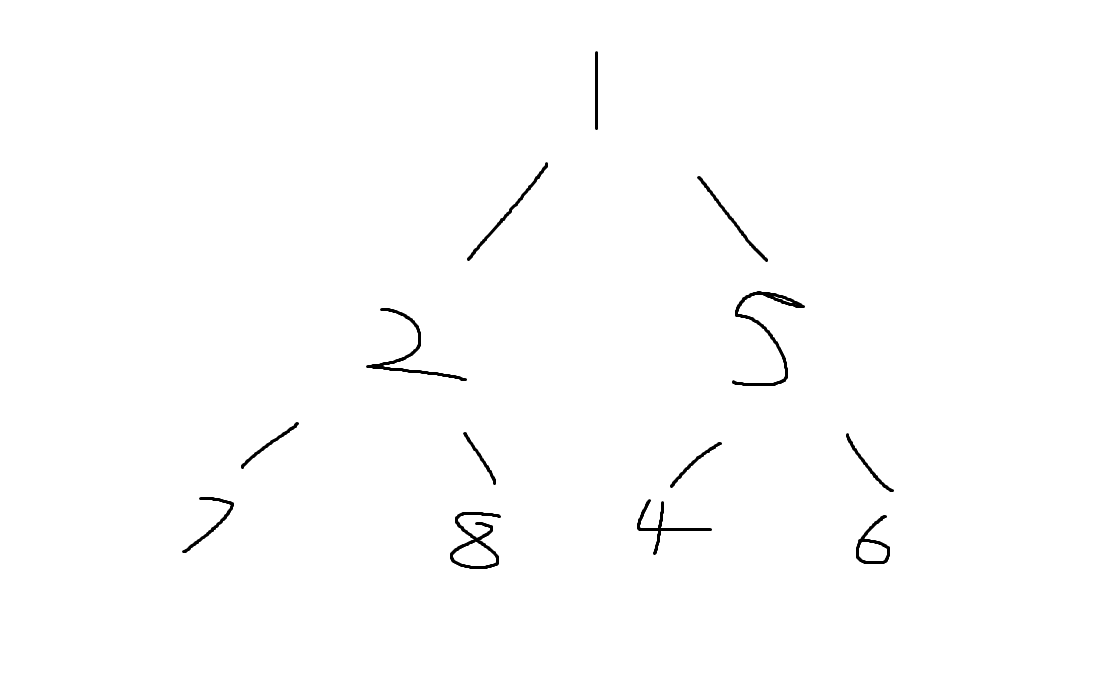 1
2 5
7 8 4 6